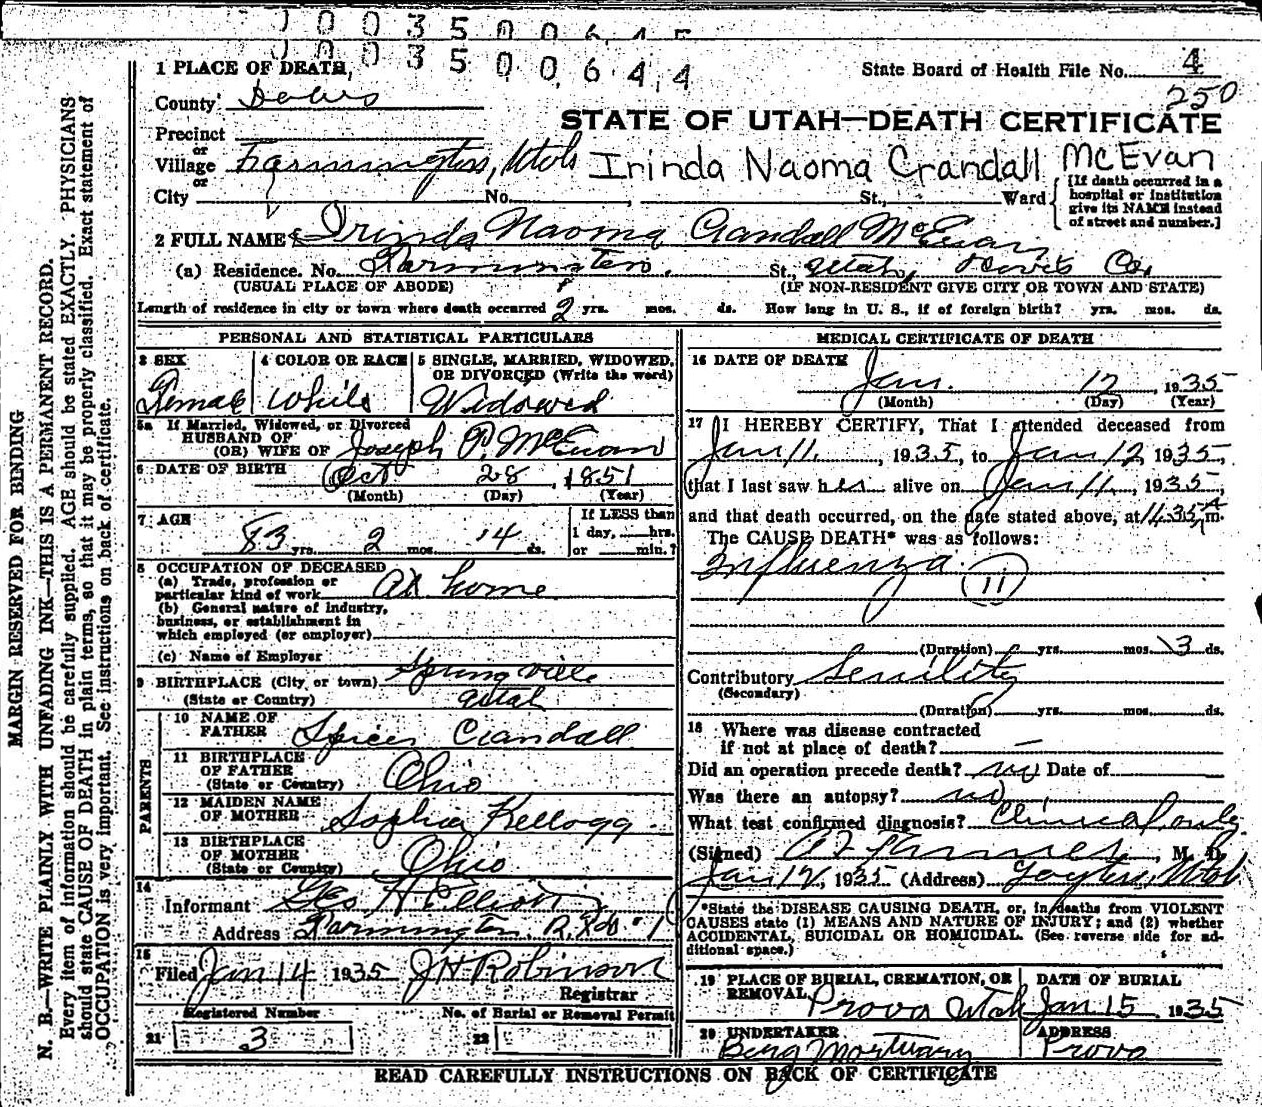 J 0 0 3 5 0 0 6 4 5
J 0 0 3 5 0 0 6 4 4
1 PLACE OF DEATH,
State Board of Health File No. 4
250
County Davis
STATE OF UTAH—DEATH CERTIFICATE
Precinct
or
Village Farmington, Utah
Irinda Naoma Crandall McEvan
or
City No. , St., Ward
[If death occurred in a hospital or institution give its NAME instead of street and number.]
2 FULL NAME Irinda Naoma Crandall McEwan
(a) Residence. No. Farmington. St., Utah, Davis Co.
(USUAL PLACE OF ABODE) (IF NON-RESIDENT GIVE CITY OR TOWN AND STATE)
Length of residence in city or town where death occurred 2 yrs. mos. ds. How long in U. S., if of foreign birth? yrs. mos. ds.
PERSONAL AND STATISTICAL PARTICULARS
3 SEX
Female
4 COLOR OR RACE
White
5 SINGLE, MARRIED, WIDOWED, OR DIVORCED (Write the word)
Widowed
5a If Married, Widowed, or Divorced
HUSBAND OF
(OR) WIFE OF Joseph P. McEwan
6 DATE OF BIRTH Oct 28, 1851
(Month) (Day) (Year)
7 AGE
83 yrs. 2 mos. 14 ds.
If LESS than
1 day, hrs.
or min.?
8 OCCUPATION OF DECEASED
(a) Trade, profession or
particular kind of work At home
(b) General nature of industry,
business, or establishment in
which employed (or employer)
(c) Name of Employer
9 BIRTHPLACE (City or town) Springville
(State or Country) Utah
PARENTS
10 NAME OF FATHER Spicer Crandall
11 BIRTHPLACE OF FATHER
(State or Country) Ohio
12 MAIDEN NAME OF MOTHER Sophia Kellogg
13 BIRTHPLACE OF MOTHER
(State or Country) Ohio
14
Informant Geo H Elliott
Address Farmington, R.F.D. #1
15
Filed Jan 14 1935 J H Robinson
Registrar
Registered Number No. of Burial or Removal Permit
21 3 22
MEDICAL CERTIFICATE OF DEATH
16 DATE OF DEATH
Jan. 12, 1935
(Month) (Day) (Year)
17 I HEREBY CERTIFY, That I attended deceased from
Jan 11, 1935, to Jan 12, 1935,
that I last saw her alive on Jan 11, 1935,
and that death occurred, on the date stated above, at m.
The CAUSE DEATH* was as follows:
Influenza
11
(Duration) yrs. mos. 3 ds.
Contributory Senility
(Secondary)
(Duration) yrs. mos. ds.
18 Where was disease contracted
if not at place of death? —
Did an operation precede death? no Date of
Was there an autopsy? no
What test confirmed diagnosis? Clinical only
(Signed) , M. D.
Jan 12, 1935 (Address) Layton, Utah
*State the DISEASE CAUSING DEATH, or, in deaths from VIOLENT
CAUSES state (1) MEANS AND NATURE OF INJURY; and (2) whether
ACCIDENTAL, SUICIDAL OR HOMICIDAL. (See reverse side for ad-
ditional space.)
19 PLACE OF BURIAL, CREMATION, OR REMOVAL
Provo Utah
DATE OF BURIAL
Jan 15, 1935
20 UNDERTAKER
Berg Mortuary
ADDRESS
Provo
READ CAREFULLY INSTRUCTIONS ON BACK OF CERTIFICATE
MARGIN RESERVED FOR BINDING
N. B.—WRITE PLAINLY WITH UNFADING INK—THIS IS A PERMANENT RECORD.
Every item of information should be carefully supplied. AGE should be stated EXACTLY. PHYSICIANS
should state CAUSE OF DEATH in plain terms, so that it may be properly classified. Exact statement of
OCCUPATION is very important. See instructions on back of certificate.